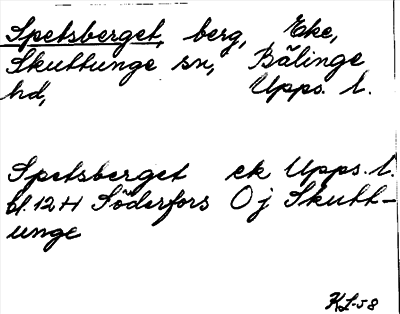 Spetsberget, berg, Eke,
Skuttunge sn, Bälinge
hd, Upps. l.
Spetsberget ek Upps. l.
bl. 12 H Söderfors O j Skutt-
unge
KL-58